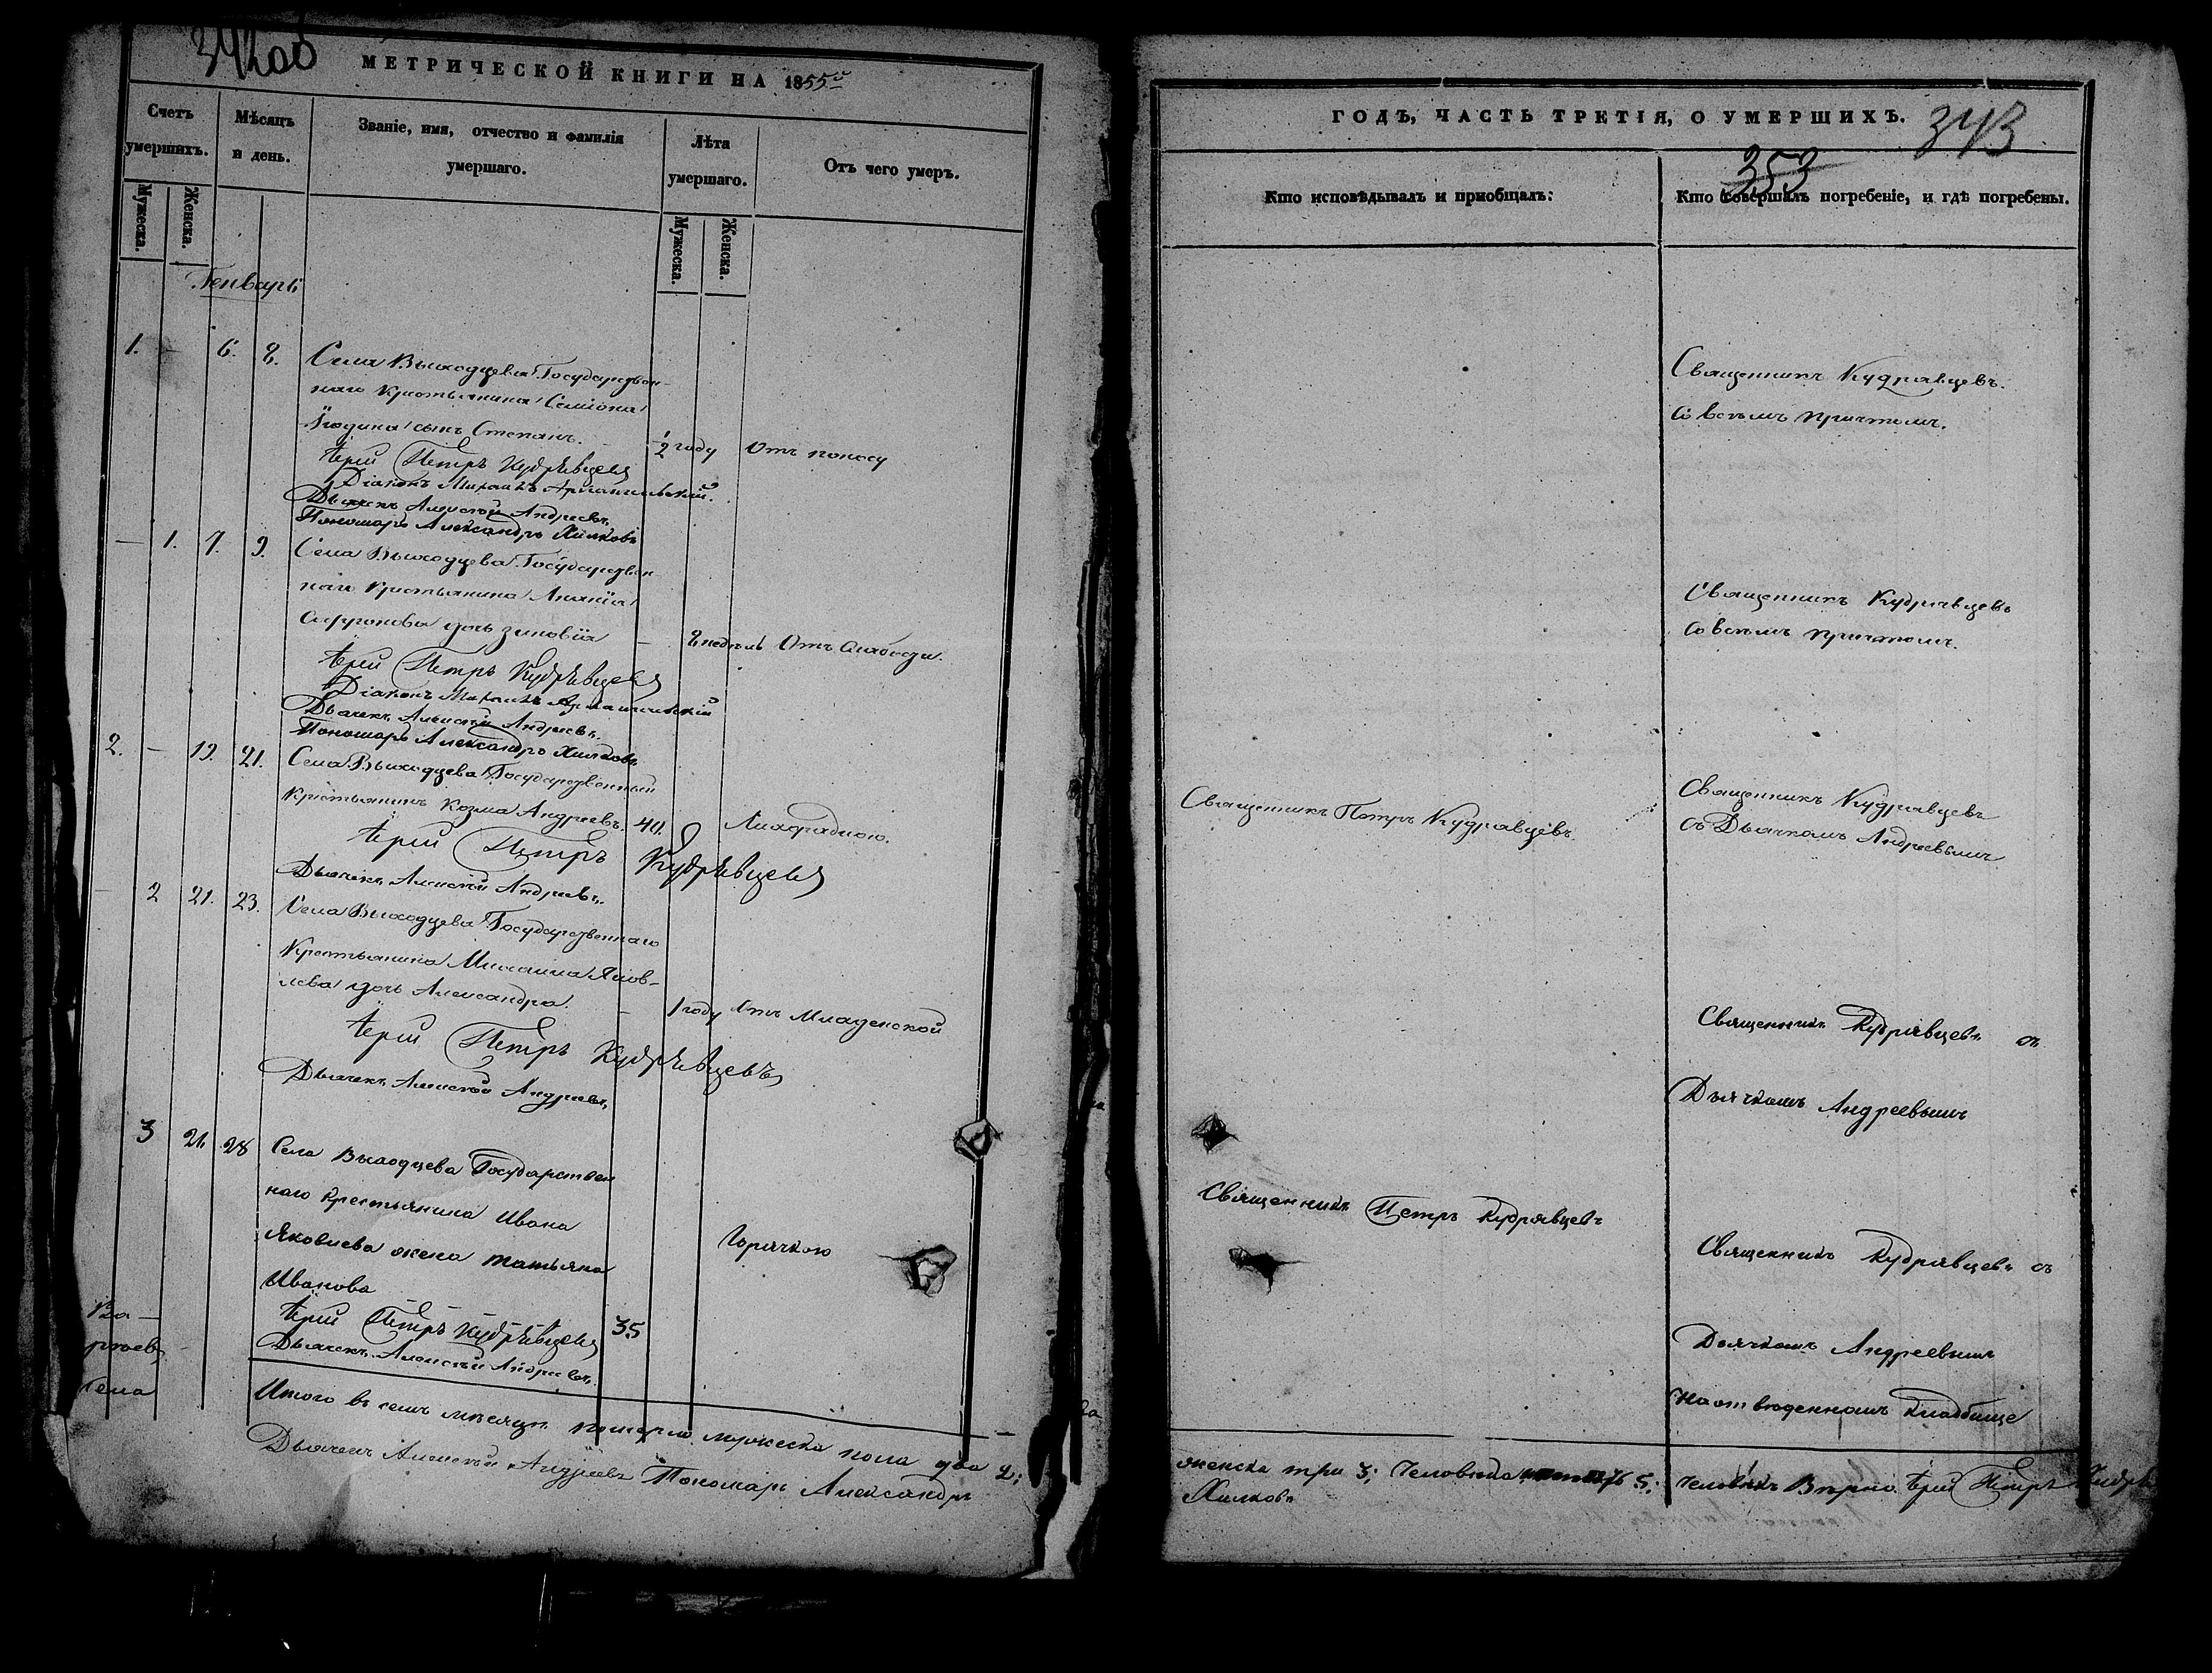 342об
МЕТРИЧЕСКОЙ КНИГИ НА 1855й
Счетъ умершихъ.
Мѣсяцъ и день.
Званіе, имя, отчество и фамилія умершаго.
Лѣта умершаго.
Отъ чего умеръ.
Мужеска.
Женска.
Мужеска.
Женска.
Генварь
1. – 6. 8. Села Выходцева Государствен-
наго Крестьянина Семіона
сынъ Степанъ. ½ году Отъ поносу
Іерей Петръ Кудрявцевъ
Діаконъ Михаилъ Архангельскій.
Дьячекъ Алексей Андреевъ
Пономарь Александръ Хилковъ
– 1. 7. 9. Села Выходцева Государствен-
наго Крестьянина Ананіа
Сафронова дочь Зиновіа – 8 недель Отъ Слабости.
Іерей Петръ Кудрявцевъ
Діаконъ Михаилъ Архангельскій
Дьячекъ Алексей Андреевъ.
Пономарь Александръ Хилковъ
2. – 19. 21. Села Выходцева Государственный
Крестьянинъ Козма Андреевъ. 40. Лихарадкою.
Іерей Петръ Кудрявцевъ
Дьячекъ Алексей Андреевъ.
– 2 21. 23. Села Выходцева Государственнаго
Крестьянина Михаила Яков-
лева дочь Александра. – 1 году Отъ Младенской
Іерей Петръ Кудрявцевъ
Дьячекъ Алексей Андреевъ
3 26 28 Села Выходцева Государствен
наго Крестьянина Ивана
Яковлева жена Татьяна Горячкою
Иванова
Іерей Петръ Кудрявцевъ 35
Дьячекъ Алексей Андреевъ.
Села
Итого въ семъ месяце померло мужеска пола два 2;
Дьячекъ Алексей Андреевъ Пономарь Александръ
ГОДЪ, ЧАСТЬ ТРЕТІЯ, О УМЕРШИХЪ.
343
353
Кто исповѣдывалъ и пріобщалъ:
Кто совершалъ погребеніе, и гдѣ погребены.
Священникъ Кудрявцевъ.
Со всемъ причтомъ.
Священникъ Кудрявцевъ
Со всемъ причтомъ.
Священникъ Петръ Кудрявцевъ
Священникъ Кудрявцевъ
съ Дьячкомъ Андреевымъ
Священникъ Кудрявцевъ съ
Дьячкомъ Андреевымъ
Священникъ Петръ Кудрявцевъ
Священникъ Кудрявцевъ съ
Дьячкомъ Андреевымъ
На отведенномъ кладбище
женска три 3; Человека 5; человекъ Верно Іерей Петръ Кудряв
Хилковъ